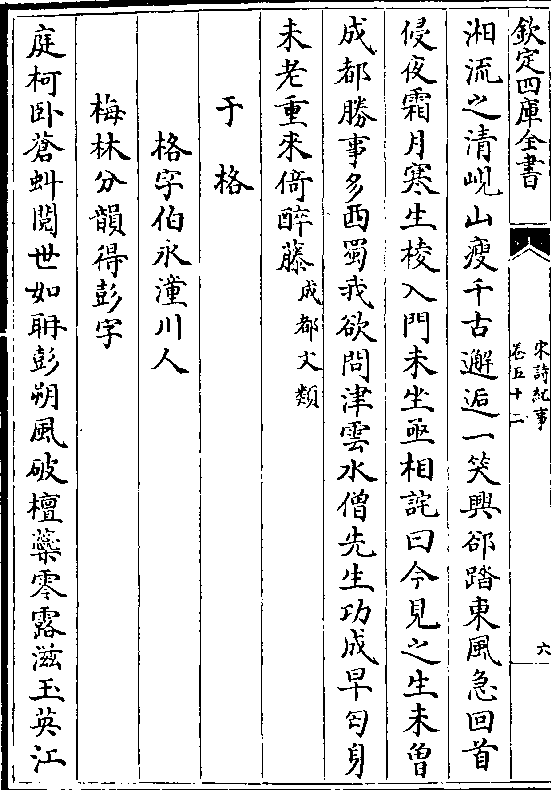 欽定四庫全書
宋詩紀事
卷五十二
六
湘流之清峴山瘦千古邂逅一笑興郤踏東風急回首
侵夜霜月寒生棱入門未坐亟相詫曰今見之生未曾
成都勝事多西蜀我欲問津雲水僧先生功成早匄身
未老重來倚醉藤成都文類
于格
格字伯永潼川人
梅林分韻得彭字
庭柯卧蒼虯閲世如耼彭朔風破檀蘂零露滋玉英江